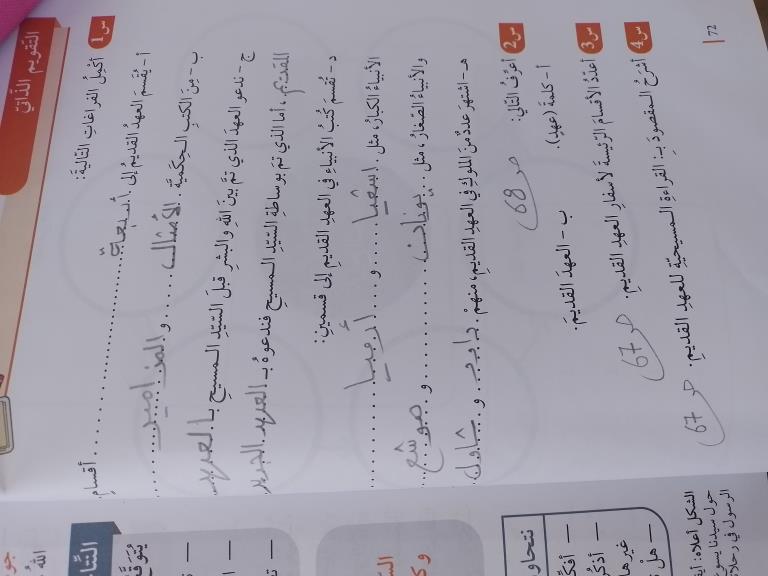 التقويم الذّاتيّ
س1 أكْمِلُ الفراغاتِ التّاليةَ:
أ- يُقْسَمُ العهدُ القديمُ إلى أربعة أقسامٍ
ب- مِنَ الكتبِ الحِكَمِيَّةِ الأمثال و المزامير
ج- ندعو العهدَ الذي تمَّ بينَ اللهِ والبشرِ قبلَ السّيّدِ المسيحِ بـ العهد
القديم، أما الذي تمَ بوساطةِ السّيّدِ المسيحِ فندعوهُ بـ العهد الجديد
د- تُقسَمُ كُتُبُ الأنبياءِ في العهدِ القديمِ إلى قسمينِ:
الأنبياءُ الكبارُ، مثل أشعيا و أرميا
والأنبياءُ الصّغارُ، مثل يوناثان و هوشع
هـ- اشتهرَ عددٌ منَ الملوكِ في العهدِ القديمِ، منهمْ داود و شاول
س2 أعرِّفُ التّالي: ص 68
أ- كلمةَ (عهدٍ). ب- العهدَ القديمَ.
س3 أعدّدُ الأقسامَ الرّئيسةَ لأسفارِ العهدِ القديمِ. ص 67
س4 أشرَحُ المقصودَ بـ: القراءةِ المسيحيّةِ للعهدِ القديمِ. ص 67
72
نتحاور
الشكل أعلاه:
حول سيدنا يسوع